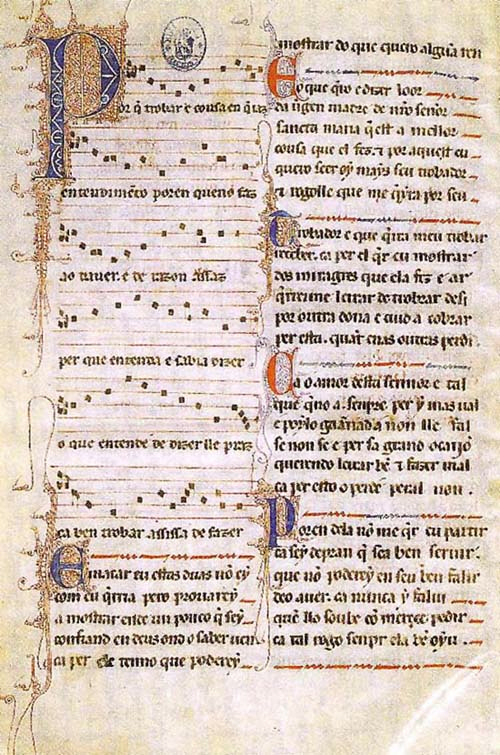 Por q̄ trobar e cousa en q̄ iaz
entendimēto poren queno faz
ao dauer. e de razon assaz
per que entenda e sabia dizer
o que entende de dizer lle praz
ca ben trobar assi sa de fazer
E macar eu estas duas nō ey
com eu q̄rria pero prouarey
a mostrar ende un pouco q̄ sey
confiand en deus ond o saber uen
ca per ele tenno que poderey
mostrar do que quero algūa ren
E o que q̄ro e dizer loor
da uirgen madre de nr̄o señor
santa maria q̄ est a mellor
cousa que el fez. ⁊ por aquest eu
quero seer oy mays seu trobador
⁊ rogolle que me q̄ira por seu
Trobador e que q̄ira meu trobar
receber. ca per el q̄r eu mostrar
dos miragres que ela fez e ar
q̄rreime leixar de trobar desi
por outra dona e cuid a cobrar
per esta. quāt enas outras perdi.
Ca o amor desta sennor e tal
que q̄no a. senpre per y mas ual
e poylo gaannada non lle fal
se non se e per sa grand ocaiō
querendo leixar bē ⁊ fazer mal
ca per esto o perde ⁊ per al non.
Poren dela nō me q̄r eu partir
ca sey de pran q̄ sea ben seruir.
que nō poderey en seu ben falir
deo auer. ca nunca y faliu
quē llo soube cō merçee pedir
ca tal rogo senpr ela bē oyu.